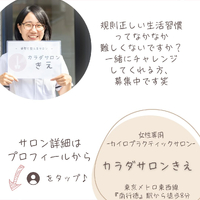 規則正しい生活習慣
ってなかなか
難しくないですか？
一緒にチャレンジ
してくれる方、
募集中です笑
カラダサロン
きえ
サロン詳細は
プロフィールから
をタップ♪
女性専用
-カイロプラクティックサロン-
カラダサロンきえ
東京メトロ東西線
『南行徳』駅から徒歩8分